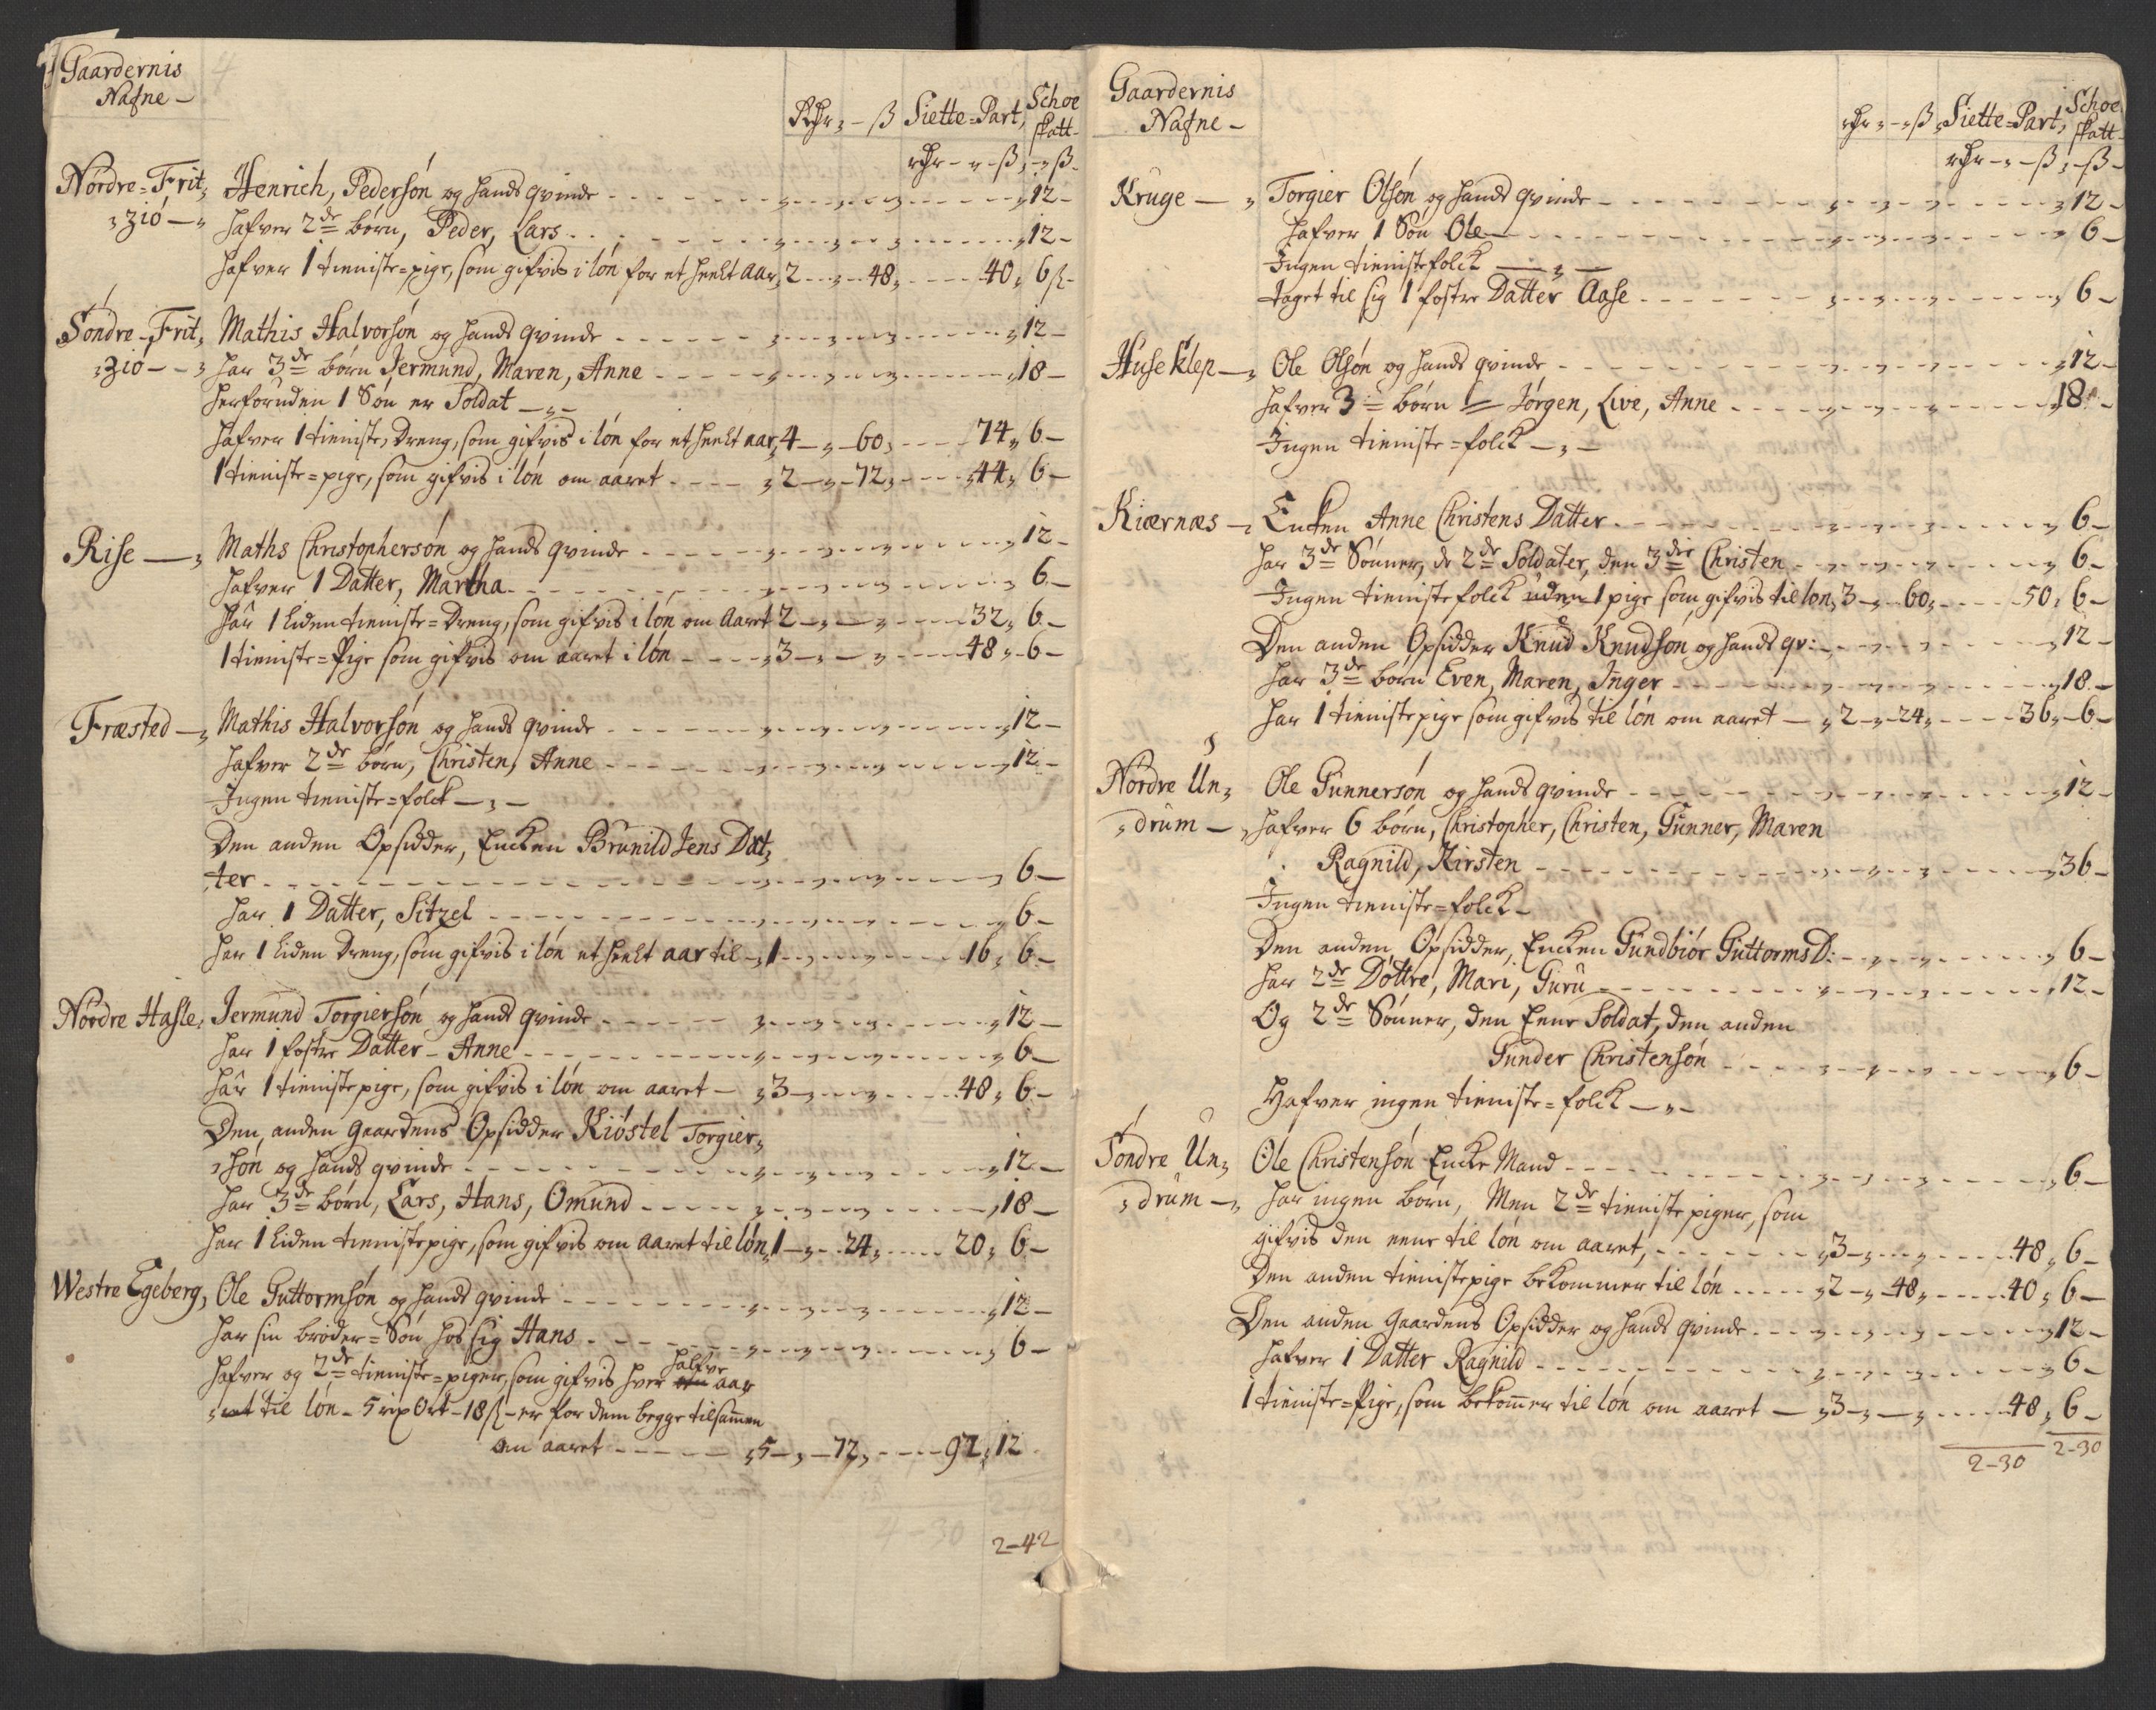 Gaardernis
Nafne —
Rdr, - ß Siette=Part, Schoe
skatt
rdr - - ß, - ß -
Nordre=Frit, Henrich, Pedersøn og hands qvinde - - - 12 -
,ziø — , hafver 2de børn, Peder, Lars - - - 12 -
hafver 1 tieniste=pige, som gifvis i løn for et heelt aar, 2 - 48, - - 40, 6 ß -
Søndre=Frit, Mathis Halvorsøn og hands qvinde - - - 12 -
,ziø - - , har 3de børn Jermund, Maren, Anne - - - 18 -
herforuden 1 Søn er Soldat — , —
hafver 1 tieniste, Dreng, som gifvis i løn for et heelt aar, 4 - 60, - - 74, 6 -
1 tieniste=pige, som gifvis i løn om aaret - - - 2 - 72, - - 44, 6 -
Rise — , Maths Christophersøn og hands qvinde - - - 12 -
hafver 1 Datter, Martha - - - 6 -
har 1 liden tieniste=Dreng, som gifvis i løn om Aaret 2 - - - 32, 6 -
1 tieniste=Pige som gifvis om aaret i løn - - - 3 - - - 48, - 6 -
Fræsted — , Mathis Halvorsøn og hands qvinde - - - 12 -
hafver 2de børn, Christen, Anne - - - 12 -
Ingen tieniste=folck — , —
Den anden Opsidder, Encken Brunild Jens Dat,
,ter - - - 6 -
har 1 Datter, Sitzel - - - 6 -
har 1 liden Dreng, som gifvis i løn et heelt aar til - , 1 - - - 16, 6 -
Nordre Hasle, Jermund Torgiersøn og hands qvinde - - - 12 -
har 1 foster Datter - Anne - - - 6 -
har 1 tienistepige, som gifvis i løn om aaret - , 3 - - - 48, 6 -
Den, anden gaardens Opsidder Kiøstel Torgier,
,søn og hands qvinde - - - 12 -
har 3de børn, Lars, Hans, Omund - - - 18 -
har 1 liden tienistepige, som gifvis om aaret til løn, 1 - 24, - - 20, 6 -
Westre Egeberg, Ole Guttormsøn og hands qvinde - - - 12 -
har sin broder=Søn hos sig Hans - - - 6 -
hafver og 2de tieniste=piger, som gifvis hver halfve aar
til løn - 5 rix Ort - 18 ß - er for dem begge tilsamen
om aaret - - - 5 - , - 72, - - - 92, 12
4 - 30
2 - 42
2 - 42
Gaardernis
Nafne -
rdr - - ß, Siette=Part, Schoe
skatt
rdr - - ß, - ß -
Kruge — , Torgier Olsøn og hands qvinde - - - 12 -
hafver 1 Søn Ole - - - 6 -
Ingen tienistefolck — , —
taget til sig 1 foster Datter Aase - - - 6 -
Huseklep — , Ole Olsøn og hands qvinde - - - 12 -
hafver 3 børn Jørgen, Live, Anne - - - 18 -
Ingen tieniste=folck — , —
Kiærnæs — , Encken Anne Christens Datter - - - 6 -
har 3de Sønner, de 2de Soldater, den 3die Christen - - - 6 -
Ingen tienistefolck uden 1 pige som gifvis til løn, 3 - 60, - - 50, 6 -
Den anden Opsidder Knud Knudsøn og hands qv: - - - 12 -
har 3de børn Even, Maren, Inger - - - 18 -
har 1 tienistepige som gifvis til løn om aaret - , 2 - 24, - - 36, - 6 -
Nordre Un, Ole Gunnersøn og hands qvinde - - - 12 -
,drum — , hafver 6 børn, Christopher, Christen, Gunner, Maren
Ragnild, Kirsten - - - 36 -
Ingen tieniste=folck -
Den anden Opsidder, Encken Gundbiør Guttorms D: - - - 6 -
har 2de Døttre, Mari, Guru - - - 12 -
Og 2de Sønner, den Eene Soldat, den anden
Gunder Christensøn - - - 6 -
Hafver ingen tieniste=folck — , —
Søndre Un, Ole Christensøn Encke Mand - - - 6 -
,drum — , har ingen børn, Men 2de tieniste piger, som
gifvis den eene til løn om aaret, - - - 3 - - - 48, 6 -
Den anden tienistepige bekommer til løn - - - 2 - , - 48, - - 40, 6 -
Den anden gaardens Opsidder og hands qvinde - - - 12 -
hafver 1 Datter Ragnild - - - 6 -
1 tieniste=Pige, som bekomer til løn om aaret — , 3 - , - - - 48, 6 -
2 - 30 2 - 30